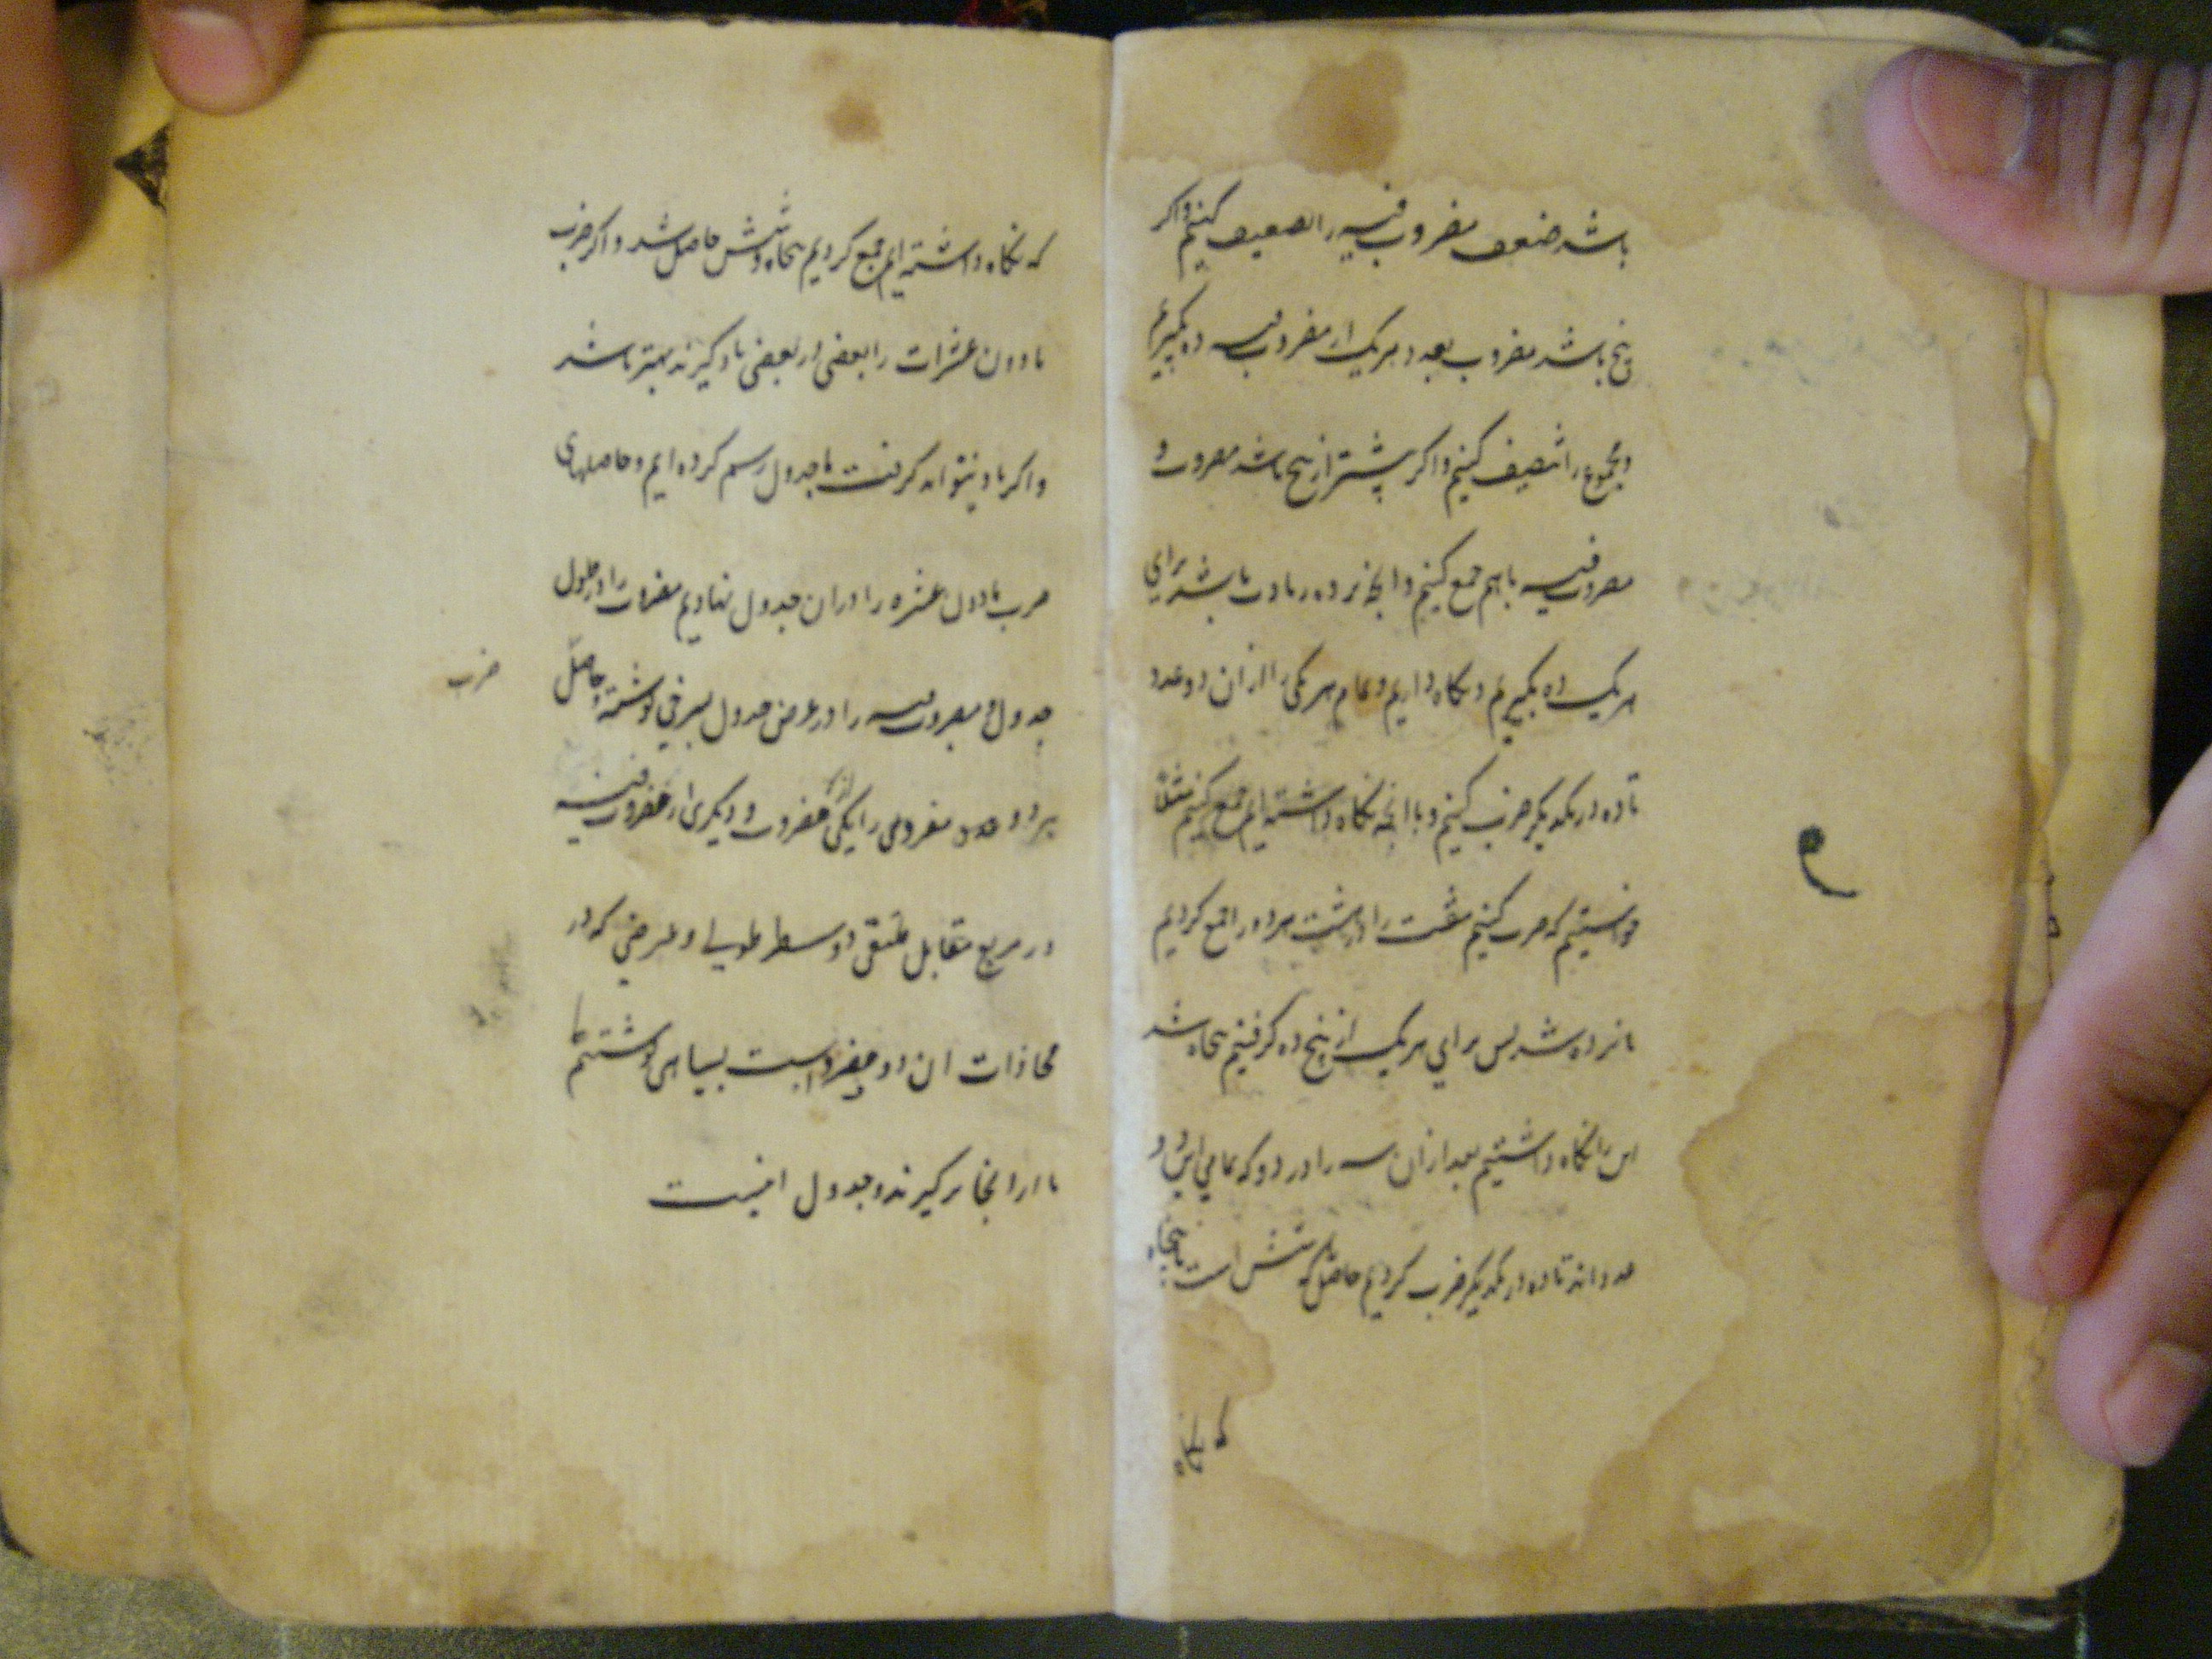 باشد ضعف مضروب فیه را تضعیف کنیم و اکر
پنج باشد مضروب بعدد هر یک از مضروب فیه ده بکیریم
و مجموع را تنصیف کنیم و اکر بیشتر از پنج باشد مضروب و
مضروب فیه باهم جمع کنیم و انچه بر ده زیادت باشد برای
هر یک ده بکیریم و نکاه داریم و تمام هر یکی را از ان دو عدد
تا ده در یکدیکر ضرب کنیم و با انچه نکاه داشته ایم جمع کنیم مثلا
خواستیم که ضرب کنیم هفت را در هشت هر دو را جمع کردیم
پانزده شد پس برای هر یک از پنج ده کرفتیم پنجاه شد
این را نکاه داشتیم بعد از ان سه را در دو که تمامی این دو
عدد اند تا ده در یکدیکر ضرب کردیم حاصل که شش است با پنجاه
که نکاه
که نکاه داشته ایم جمع کردیم پنجاه و شش حاصل شد و اکر ضرب
مادون عشرات را بعضی در بعضی یاد کیرند بهتر باشد
و اکر یاد نتواند کرفت ما جدول رسم کرده ایم و حاصلهای
ضرب مادون عشره را در ان جدول نهادیم مضروب را در طول
جدول و مضروب فیه را در عرض جدول بسرخی نوشته و حاصل
ضرب
هر دو عدد مفروض را یکی از مضروب و دیکری از مضروب فیه
در مربع متقابل ملتقی دو سطر طولی و عرضی که در
محاذات ان دو مفردست بسیاهی نوشتیم تا
ما را از انجا بر کیرند و جدول اینست